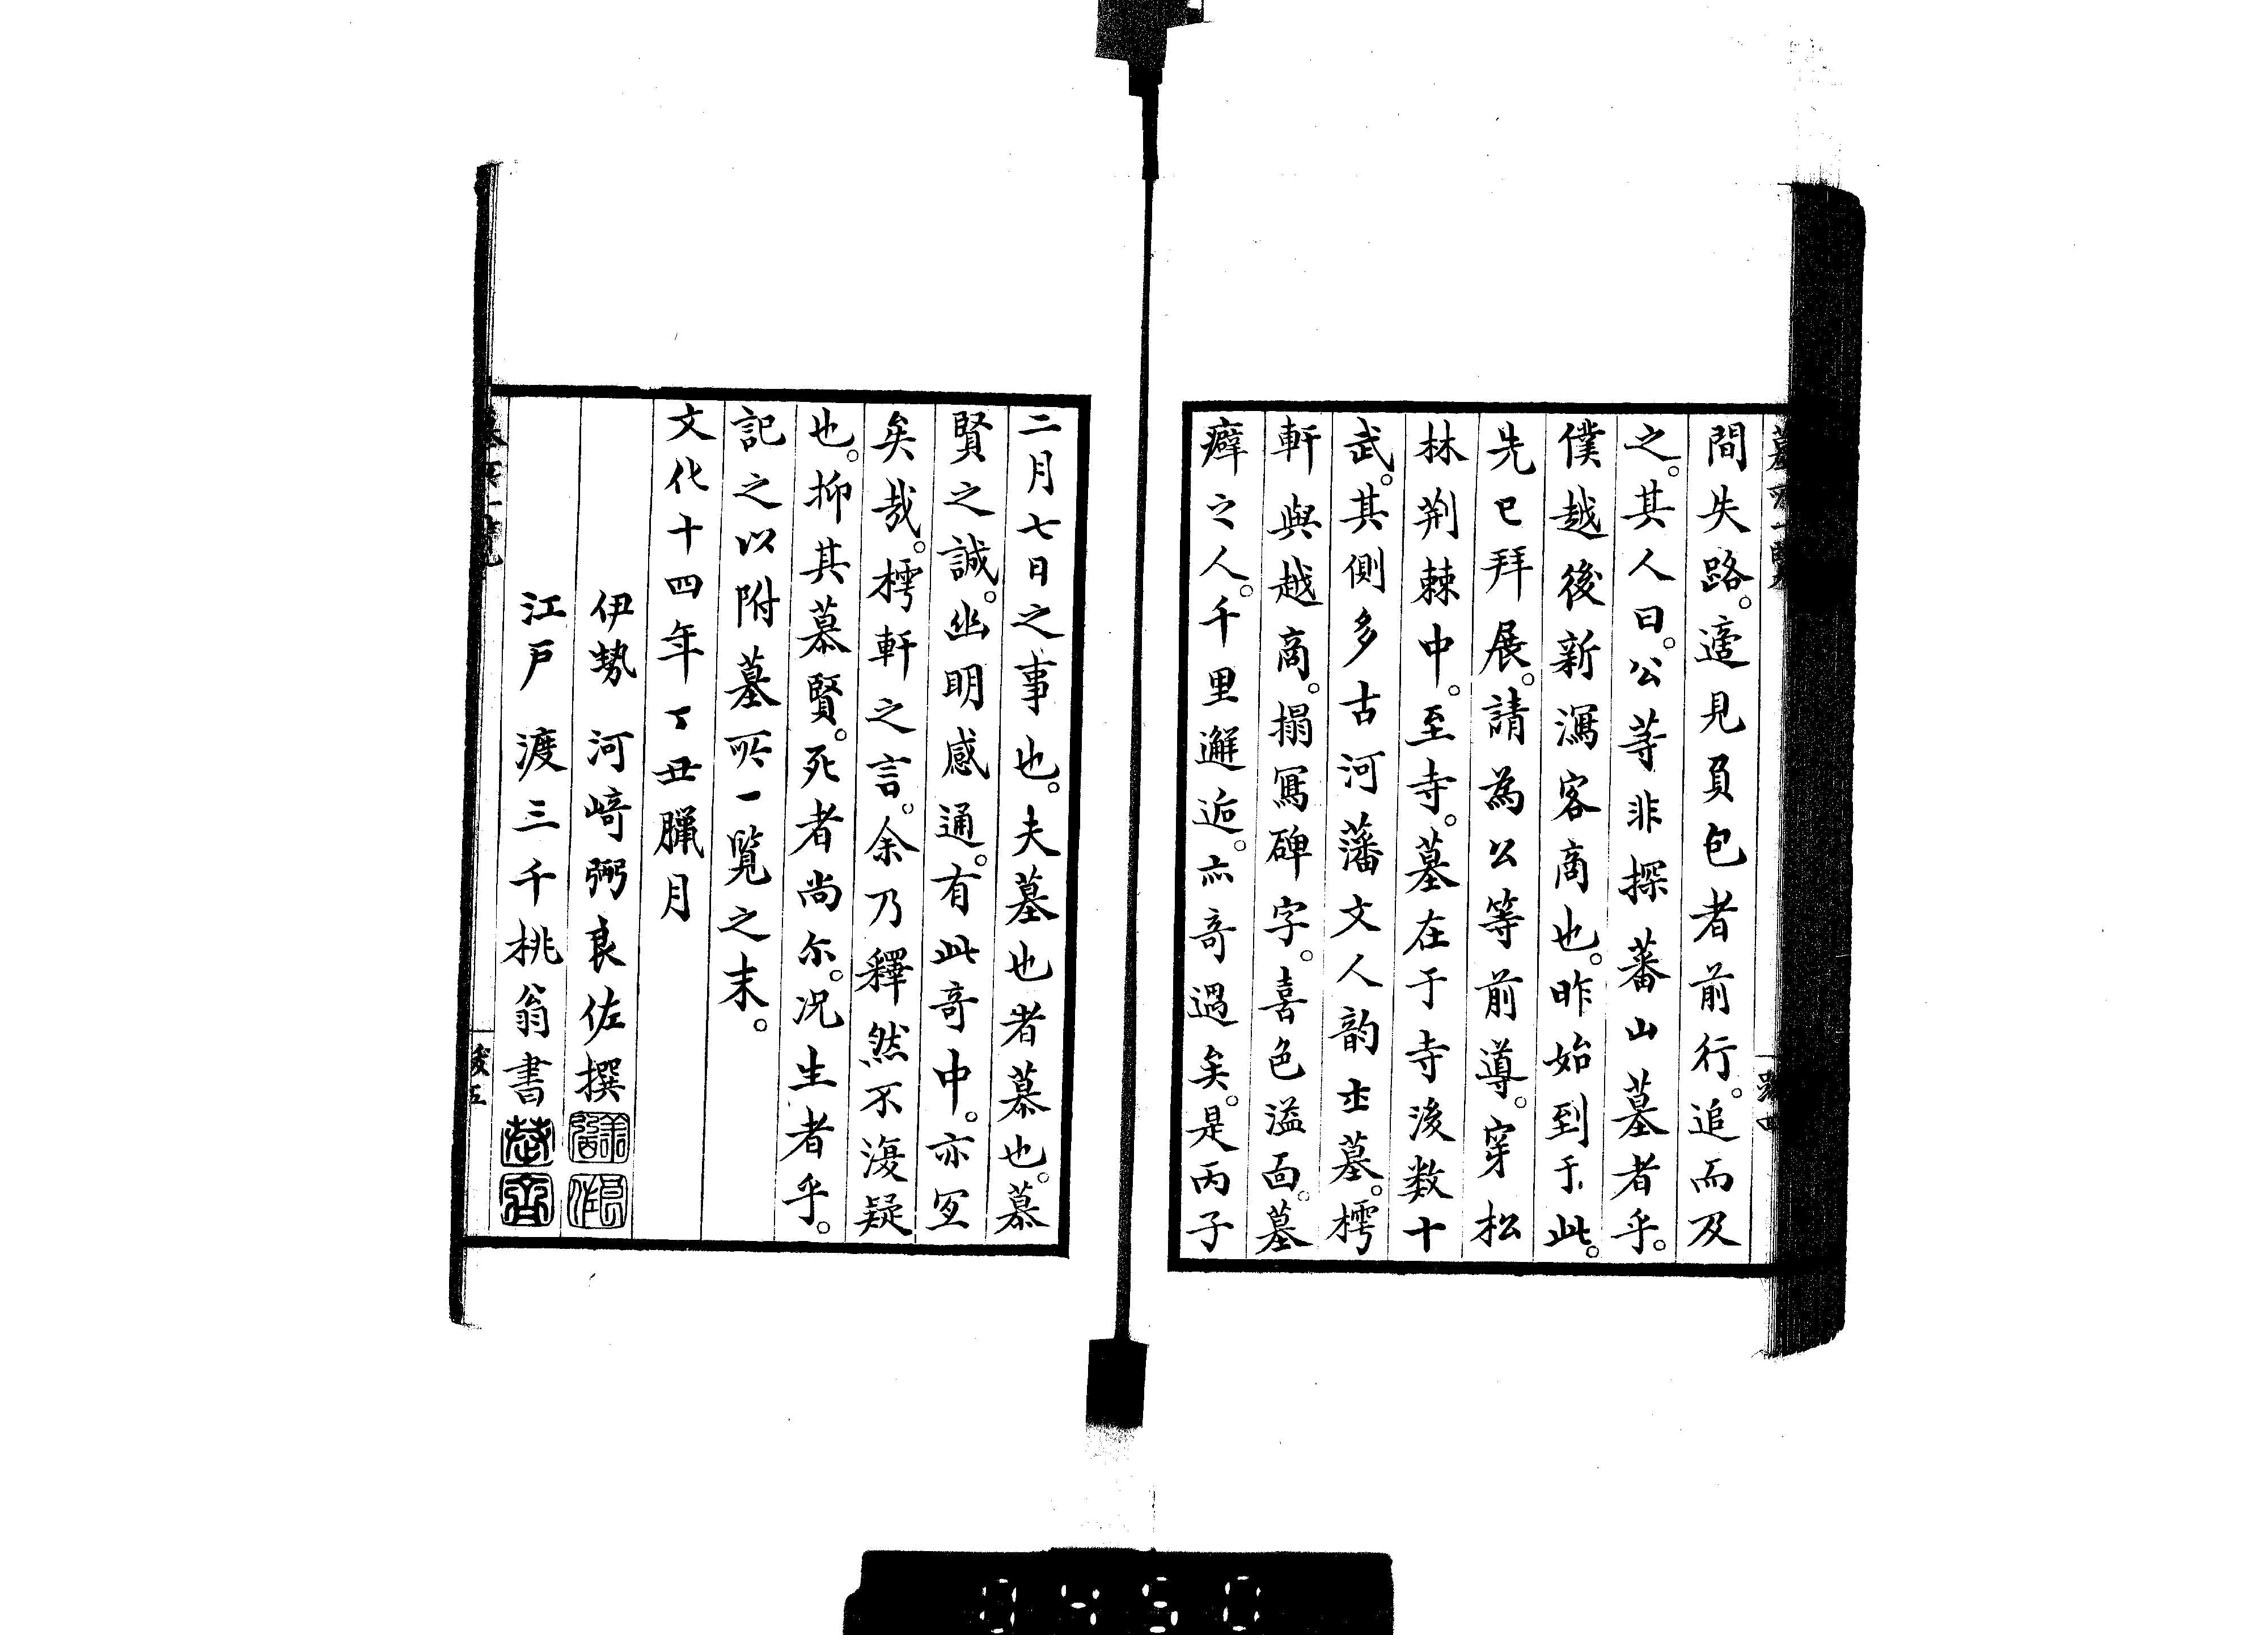 間失路。適見負包者前行。追而及
之。其人曰。公等非探蕃山墓者乎。
僕越後新瀉客商也。昨始到于此。
先已拜展。請為公等前導。穿松
林荆棘中。至寺。墓在于寺後数十
武。其側多古河藩文人韵士墓。樗
軒與越商。搨寫碑字。喜色溢面。墓
癖之人。千里邂逅。亦奇遇矣。是丙子
二月七日之事也。夫墓也者慕也。慕
賢之誠。幽明感通。有此奇中。亦宜
矣哉。樗軒之言。余乃釋然不復疑
也。抑其慕賢。死者尚尓。况生者乎。
記之以附墓所一覧之末。
文化十四年丁丑臘月
伊勢 河﨑弼良佐撰
江戸 渡三千桃翁書
墓所一覧
跋五
0450